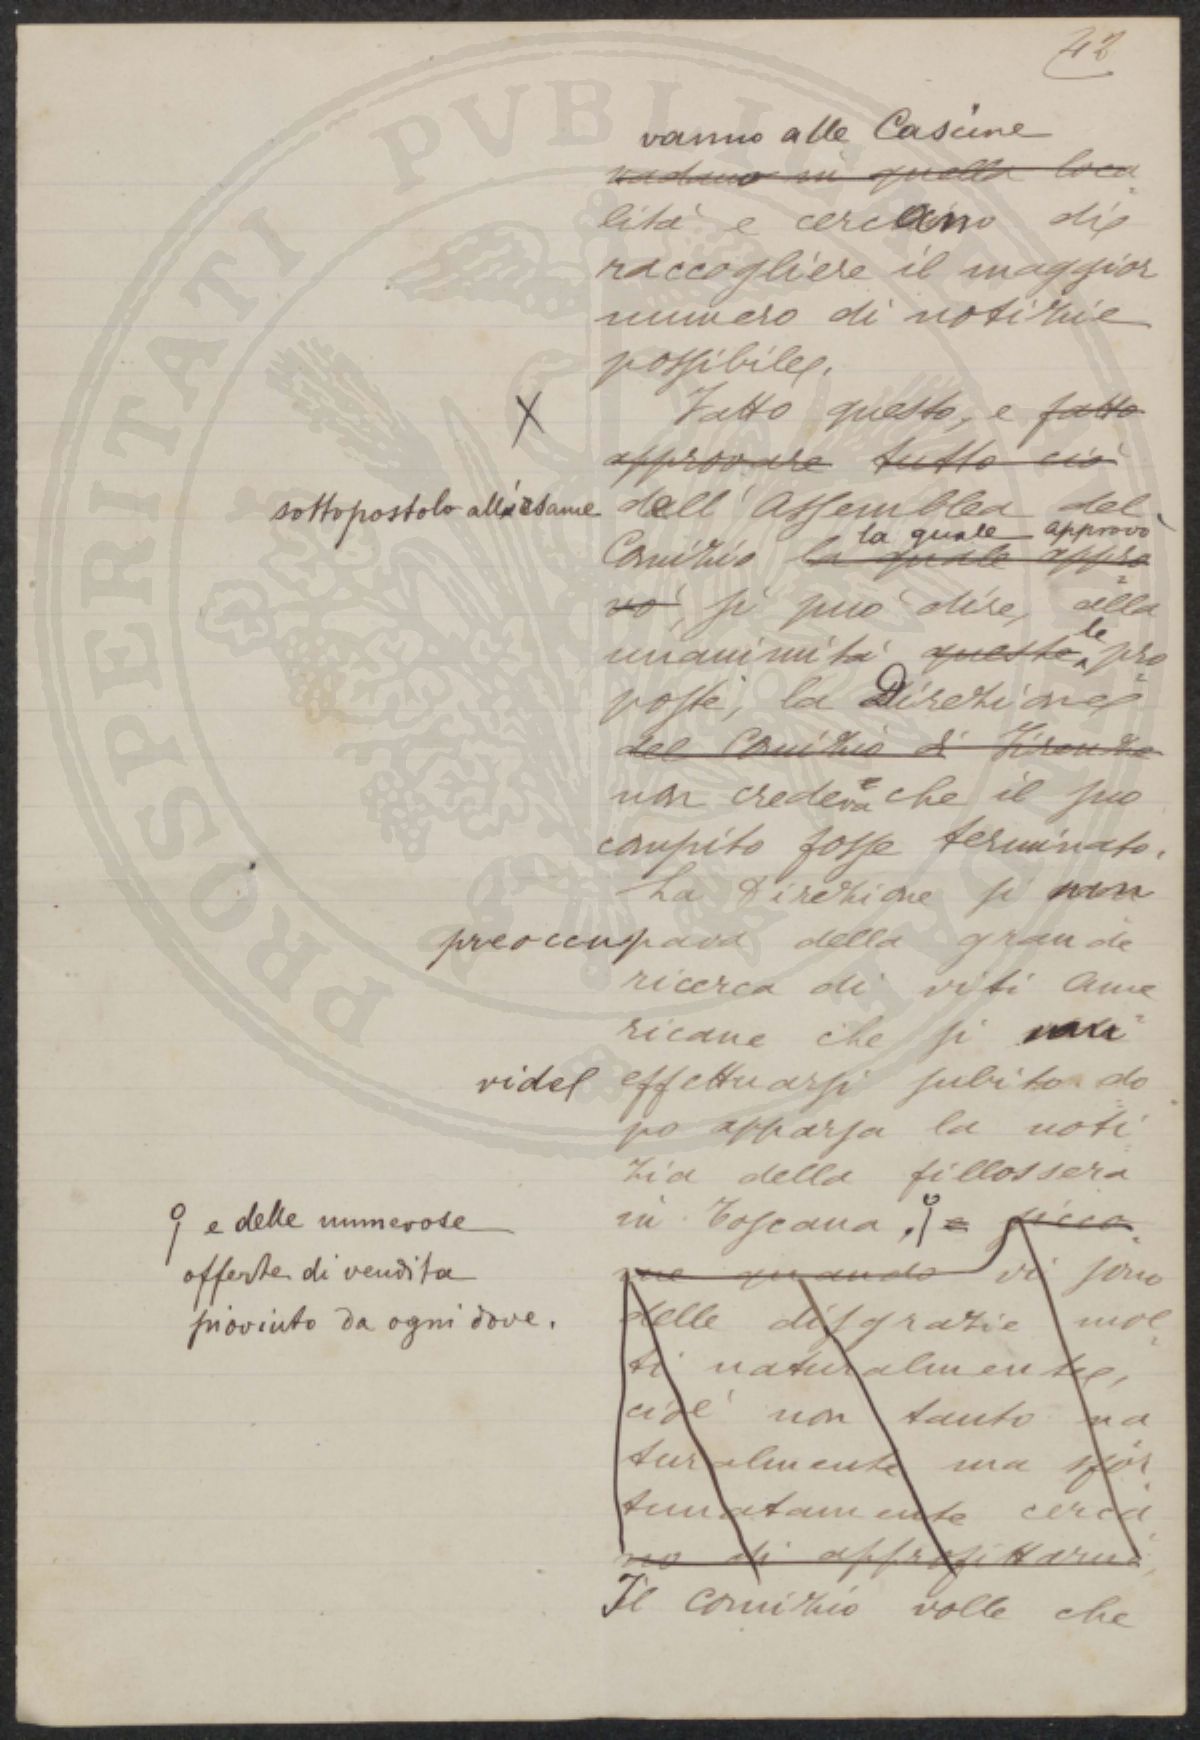 42
vanno alle Cascine
vadano in quella loca
lità e cercano di
raccogliere il maggior
numero di notizie
possibile.
X Fatto questo, e fatto
approvare tutto ciò
sottopostolo all'esame dell'Assemblea del
la quale approvò
Comizio la quale appro
vò, si può dire, alla
le
unanimità queste pro
poste, la Direzione
del Comizio di Firenze
non credeva che il suo
compito fosse terminato.
La Direzione si
preoccupava della grande
ricerca di viti ame
ricane che si
vide effettuarsi subito do
po apparsa la noti
zia della fillossera
in Toscana, e sicco
e delle numerose
offerte di vendita
piovinto da ogni dove.
me quando vi sono
delle disgrazie mol
ti naturalmente,
cioè non tanto na
turalmente ma sfor
tunatamente cerca
no di approfittarne,
Il Comizio volle che
PROSPERITATI PVBLICAE